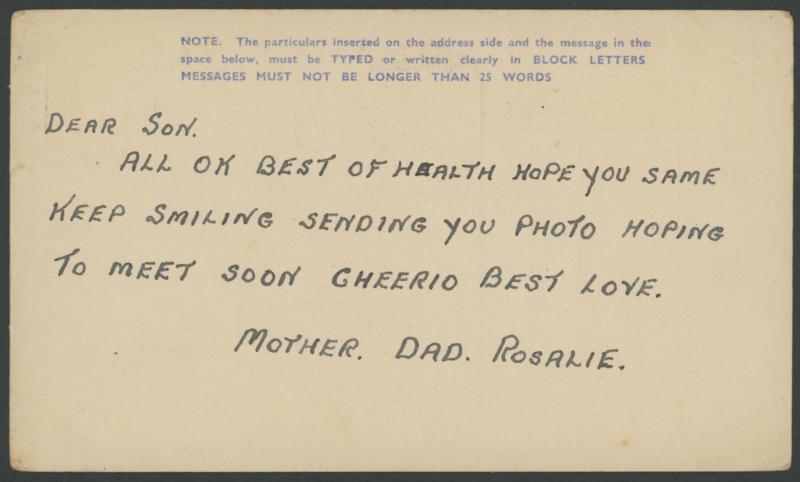 NOTE. The particulars inserted on the address side and the message in the
space below, must be TYPED or written clearly in BLOCK LETTERS
MESSAGES MUST NOT BE LONGER THAN 25 WORDS
DEAR SON.
ALL OK BEST OF HEALTH HOPE YOU SAME
KEEP SMILING SENDING YOU PHOTO HOPING
TO MEET SOON CHEERIO BEST LOVE.
MOTHER. DAD. ROSALIE.